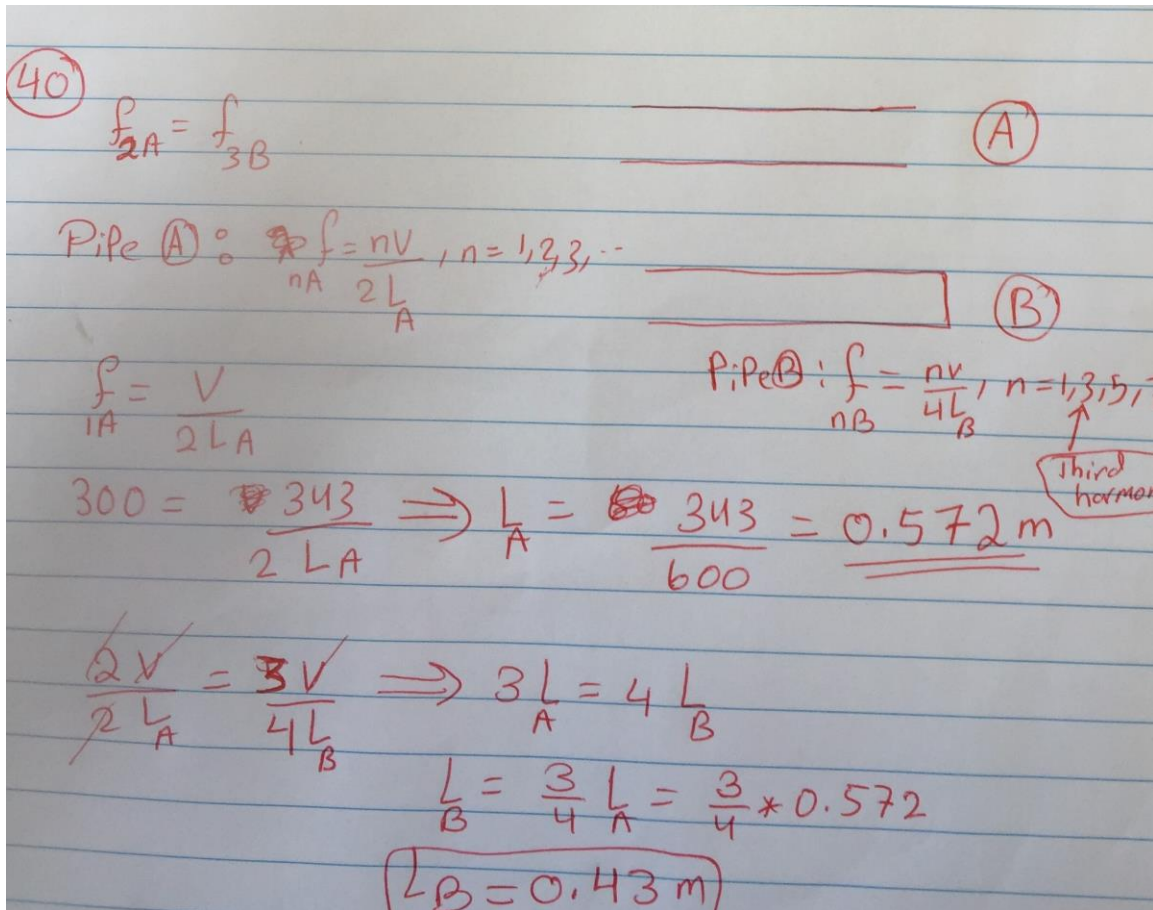 40
f2A = f3B
A
Pipe A : fnA = nV / 2LA , n = 1,2,3, ...
B
f1A = V / 2LA
Pipe B : fnB = nv / 4LB , n = 1,3,5,
Third
300 = 343 / 2LA ⟹ LA = 343 / 600 = 0.572 m
2V / 2LA = 3V / 4LB ⟹ 3LA = 4LB
LB = 3/4 LA = 3/4 * 0.572
LB = 0.43 m